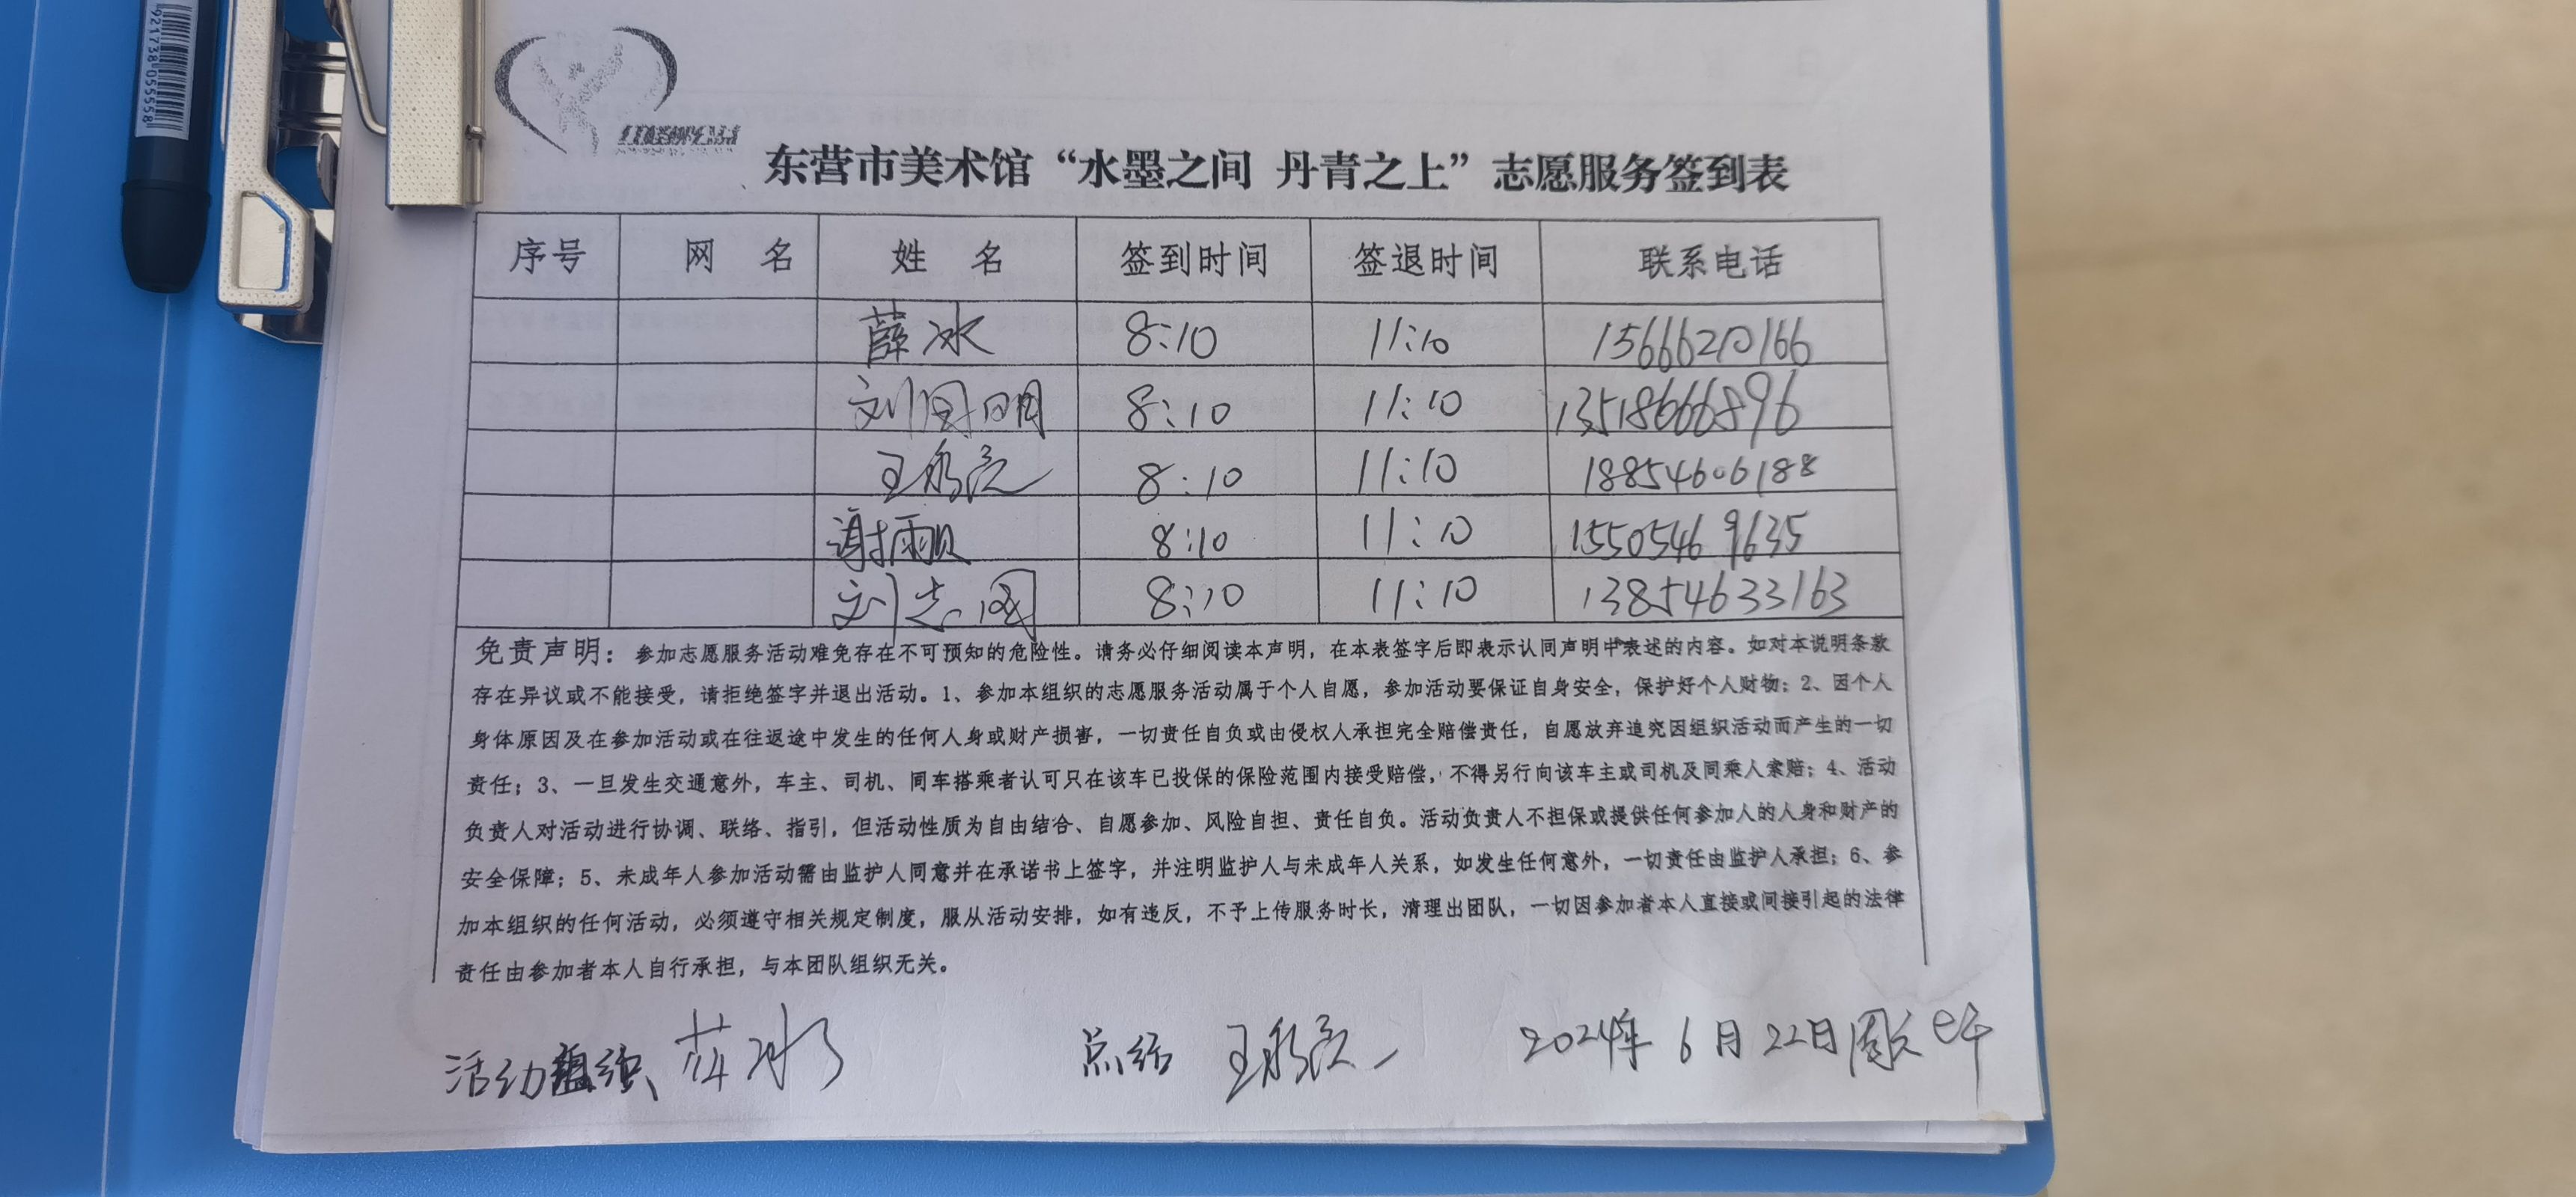 9217380555558
东营市美术馆“水墨之间 丹青之上”志愿服务签到表
序号 网 名 姓 名 签到时间 签退时间 联系电话
薛冰 8:10 11:10 15666210166
刘国明 8:10 11:10 13518666896
王 8:10 11:10 18854606188
谢雨 8:10 11:10 15505469635
刘志国 8:10 11:10 13854633163
免责声明：参加志愿服务活动难免存在不可预知的危险性。请务必仔细阅读本声明，在本表签字后即表示认同声明中表述的内容。如对本说明条款
存在异议或不能接受，请拒绝签字并退出活动。1、参加本组织的志愿服务活动属于个人自愿，参加活动要保证自身安全，保护好个人财物；2、因个人
身体原因及在参加活动或在往返途中发生的任何人身或财产损害，一切责任自负或由侵权人承担完全赔偿责任，自愿放弃追究因组织活动而产生的一切
责任；3、一旦发生交通意外，车主、司机、同车搭乘者认可只在该车已投保的保险范围内接受赔偿，不得另行向该车主或司机及同乘人索赔；4、活动
负责人对活动进行协调、联络、指引，但活动性质为自由结合、自愿参加、风险自担、责任自负。活动负责人不担保或提供任何参加人的人身和财产的
安全保障；5、未成年人参加活动需由监护人同意并在承诺书上签字，并注明监护人与未成年人关系，如发生任何意外，一切责任由监护人承担；6、参
加本组织的任何活动，必须遵守相关规定制度，服从活动安排，如有违反，不予上传服务时长，清理出团队，一切因参加者本人直接或间接引起的法律
责任由参加者本人自行承担，与本团队组织无关。
活动组织 薛冰 总结 王 2024年6月22日周六